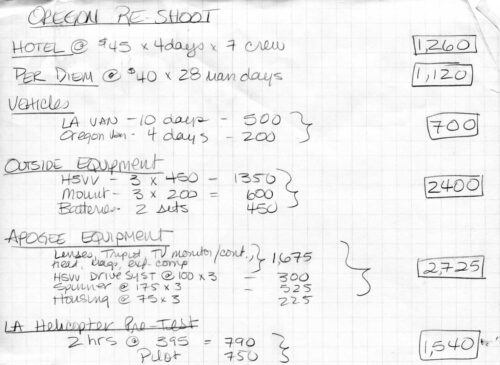 OREGON RE-SHOOT
HOTEL @ $45 x 4days x 7 crew 1,260
PER DIEM @ $40 x 28 Man days 1,120
Vehicles
LA VAN - 10 days - 500
Oregon Van - 4 days - 200 700
OUTSIDE EQUIPMENT
HSVV - 3 x 450 = 1350
Mount - 3 x 200 = 600 2400
Batteries - 2 sets 450
APOGEE EQUIPMENT
Lenses, Tripod, TV monitor/cont., 1,675
head, mags, exp. comp
HSVV DRIVE SYST @ 100 x 3 - 300 2,725
Spinner @ 175 x 3 = 525
Housing @ 75 x 3 225
LA Helicopter Pre-Test
2 hrs @ 395 = 790 1,540
Pilot 750